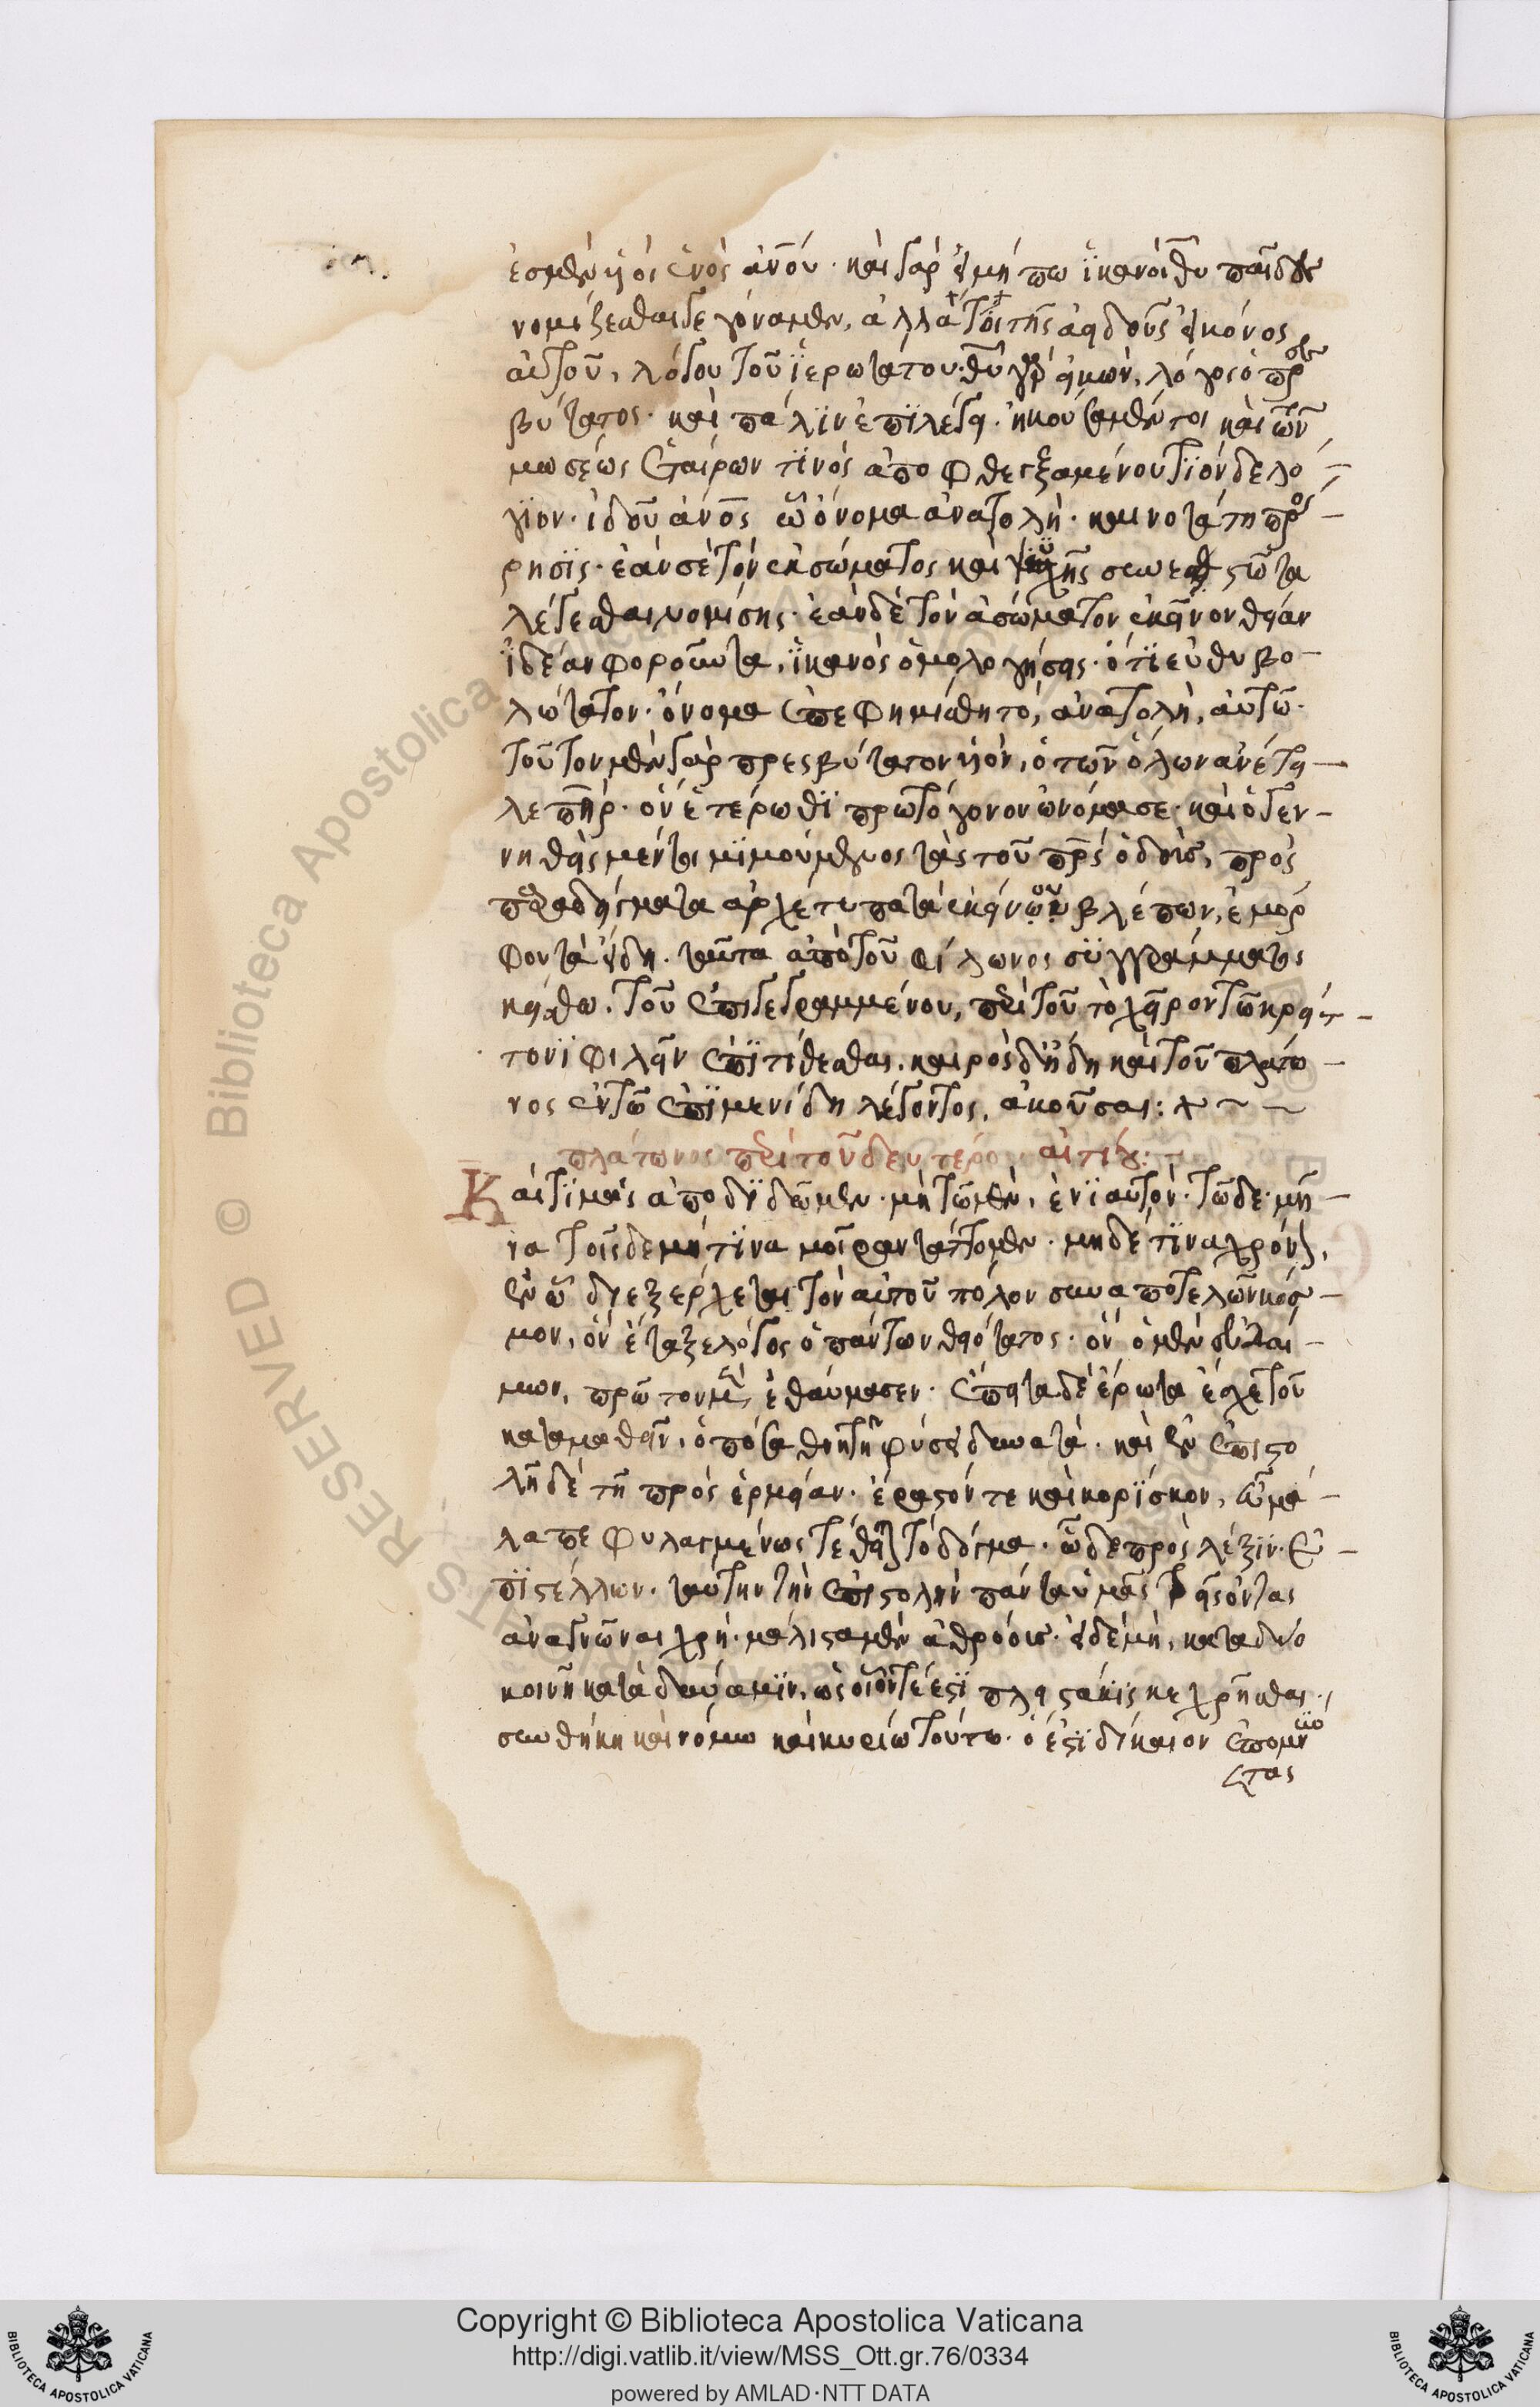 ἐσμὲν υἱοὶ ἑνὸς ἀν̅ου· καὶ γὰρ εἰ μήπω ἱκανοὶ θ̅υ παῖδες
νομίζεσθαι γεγόναμεν, ἀλλά τοι τῆς ἀειδοῦς εἰκόνος
αὐτοῦ, λόγου τοῦ ἱερωτάτου· θ̅υ γὰρ εἰκὼν, λόγος ὁ πρεσ
βύτατος· καὶ πάλιν ἐπιλέγει· ἤκουσα μέντοι καὶ τῶν
μωσέως ἑταίρων τινὸς ἀποφθεγξαμένου τοιόνδε λό
γιον· ἰδοὺ ἄν̅ος ᾧ ὄνομα ἀνατολή· καινοτάτη πρόσ
ρησις· ἐάν γε τὸν ἐκ σώματος καὶ ψυχῆς συνεστῶτα
λέγεσθαι νομίσῃς· ἐὰν δὲ τὸν ἀσώματον ἐκεῖνον θείαν
ἰδέαν φοροῦντα, ἱκανῶς ὁμολογήσεις· ὅτι εὐθυβο
λώτατον· ὄνομα ἐπεφημίσθη τό, ἀνατολή, αὐτῷ·
τοῦτον μὲν γὰρ πρεσβύτατον υἱόν, ὁ τῶν ὅλων ἀνέτει
λε π̅ηρ· ὃν ἑτέρωθι πρωτόγονον ὠνόμασε· καὶ ὁ γεν
νηθεὶς μέντοι μιμούμενος τὰς τοῦ π̅ρς ὁδοὺς, πρὸς
παραδείγματα ἀρχέτυπα τὰ ἐκείνου βλέπων, ἐμόρ
φου τὰ εἴδη· ταῦτα ἀπὸ τοῦ φίλωνος συγγράμματος
κείσθω· τοῦ ἐπιγεγραμμένου, περὶ τοῦ τὸ χεῖρον τῷ κρείτ
τονι φιλεῖν ἐπιτίθεσθαι· καιρὸς δ' ἤδη καὶ τοῦ πλάτω
νος ἐν τῷ ἐπιμενίδῃ λέγοντος, ἀκοῦσαι:
πλάτωνος περὶ τοῦ δευτέρου αἰτίου:
Καὶ τιμὰς ἀποδιδῶμεν· μὴ τῷ μὲν, ἐνιαυτὸν· τῷ δὲ μῆ
να τοῖς δὲ μήτινα μοῖραν τάττομεν· μηδέ τινα χρόνον,
ἐν ᾧ διεξέρχεται τὸν αὐτοῦ πόλον συναποτελῶν κόσ
μον, ὃν ἔταξε λόγος ὁ πάντων θειότατος· ὃν ὁ μὲν εὐδαί
μων, πρῶτον μὲν ἐθαύμασεν· ἔπειτα δὲ ἔρωτα ἔσχε τοῦ
καταμαθεῖν, ὁπόσα θνητῇ φύσει δυνατά· καὶ ἐν ἐπιστο
λῇ δὲ τῇ πρὸς ἑρμείαν· ἔραστόν τε καὶ κορίσκον, εὖ μά
λα πεφυλαγμένως τέθειται τὸ δόγμα· ὧδε πρὸς λέξιν· ἐ
πιστέλλων· ταύτην τὴν ἐπιστολὴν πάντας ὑμᾶς τρεῖς ὄντας
ἀναγνῶναι χρή· μάλιστα μὲν ἀθρόους· εἰ δὲ μὴ, κατὰ δύο
κοινῇ κατὰ δύναμιν, ὡς οἷόν τέ ἐστι πλειστάκις κεχρῆσθαι
συνθήκῃ καὶ νόμῳ καὶ κυρίῳ τούτῳ· ὅ ἐστι δίκαιον ἐπομνύο
ντας
Copyright © Biblioteca Apostolica Vaticana
http://digi.vatlib.it/view/MSS_Ott.gr.76/0334
powered by AMLAD·NTT DATA